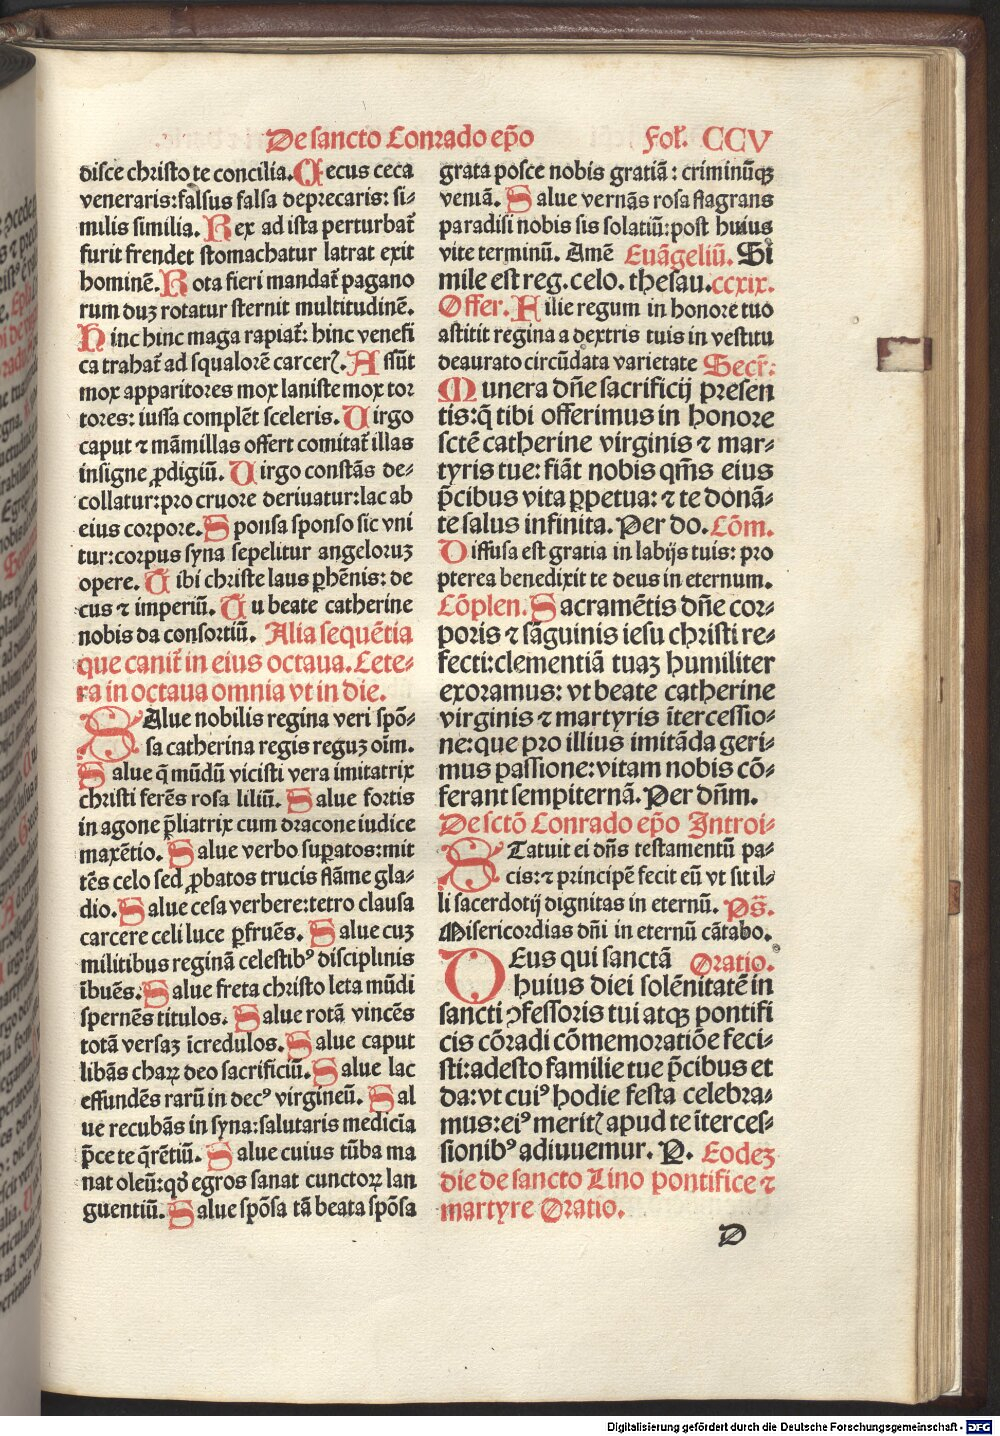 De sancto Conrado ep̃o Fol. CCV
disce christo te concilia. Cecus ceca
veneraris: falsus falsa deprecaris: si-
milis similia. Rex ad ista perturbat᷑
furit frendet stomachatur latrat exit
hominẽ. Rota fieri mandat᷑ pagano
rum duꝫ rotatur sternit multitudinẽ.
Hinc hinc maga rapiat᷑: hinc venefi
ca trahat᷑ ad squalorẽ carcerꝭ. Assũt
mox apparitores mox laniste mox tor
tores: iussa complẽt sceleris. Virgo
caput ⁊ mãmillas offert comitat᷑ illas
insigne ꝓdigiũ. Virgo constãs de-
collatur: pro cruore deriuatur: lac ab
eius corpore. Sponsa sponso sic vni
tur: corpus syna sepelitur angeloruꝫ
opere. Tibi christe laus ꝑhẽnis: de
cus ⁊ imperiũ. Tu beate catherine
nobis da consortiũ. Alia sequẽtia
que canit᷑ in eius octaua. Cete-
ra in octaua omnia vt in die.
SAlue nobilis regina veri spõ-
sa catherina regis reguꝫ oĩm.
Salue q̃ mũdũ vicisti vera imitatrix
christi ferẽs rosa liliũ. Salue fortis
in agone p̃liatrix cum dracone iudice
maxẽtio. Salue verbo suꝑatos: mit
tẽs celo sed ꝓbatos trucis flãme gla-
dio. Salue cesa verbere: tetro clausa
carcere celi luce ꝑfruẽs. Salue cuꝫ
militibus reginã celestibꝰ disciplinis
ĩbuẽs. Salue freta christo leta mũdi
spernẽs titulos. Salue rotã vincẽs
totã versaꝫ ĩcredulos. Salue caput
libãs charꝝ deo sacrificiũ. Salue lac
effundẽs rarũ in decꝰ virgineũ. Sal
ue recubãs in syna: salutaris medicĩa
p̃ce te q̃rẽtiũ. Salue cuius tũba ma
nat oleũ: qđ egros sanat cunctoꝝ lan
guentiũ. Salue spõsa tã beata spõsa
grata posce nobis gratiã: criminũqꝫ
veniã. Salue vernãs rosa flagrans
paradisi nobis sis solatiũ: post huius
vite terminũ. Amẽ Euãgeliũ. Si
mile est reg. celo. thesau. ccxix.
Offer. Filie regum in honore tuo
astitit regina a dextris tuis in vestitu
deaurato circũdata varietate Secr̃:
Munera dñe sacrificij presen
tis: q̃ tibi offerimus in honore
sctẽ catherine virginis ⁊ mar-
tyris tue: fiãt nobis qm̃s eius
p̃cibus vita ꝑpetua: ⁊ te donã-
te salus infinita. Per do. Cõm.
Diffusa est gratia in labijs tuis: pro
pterea benedixit te deus in eternum.
Cõplen. Sacramẽtis dñe cor-
poris ⁊ sãguinis iesu christi re-
fecti: clementiã tuaꝫ humiliter
exoramus: vt beate catherine
virginis ⁊ martyris ĩtercessio-
ne: que pro illius imitãda geri-
mus passione: vitam nobis cõ-
ferant sempiternã. Per dñm.
De sctõ Conrado ep̃o Introi-
STatuit ei dñs testamentũ pa-
cis: ⁊ principẽ fecit eũ vt sit il-
li sacerdotij dignitas in eternũ. Ps̃.
Misericordias dñi in eternũ cãtabo.
DEus qui sanctã Oratio.
huius diei solẽnitatẽ in
sancti ꝯfessoris tui atqꝫ pontifi
cis cõradi cõmemoratiõe feci-
sti: adesto familie tue p̃cibus et
da: vt cuiꝰ hodie festa celebra-
mus: eiꝰ meritꝭ apud te ĩterces-
sionibꝰ adiuuemur. P. Eodeꝫ
die de sancto Lino pontifice ⁊
martyre Oratio.
D
Digitalisierung gefördert durch die Deutsche Forschungsgemeinschaft - DFG